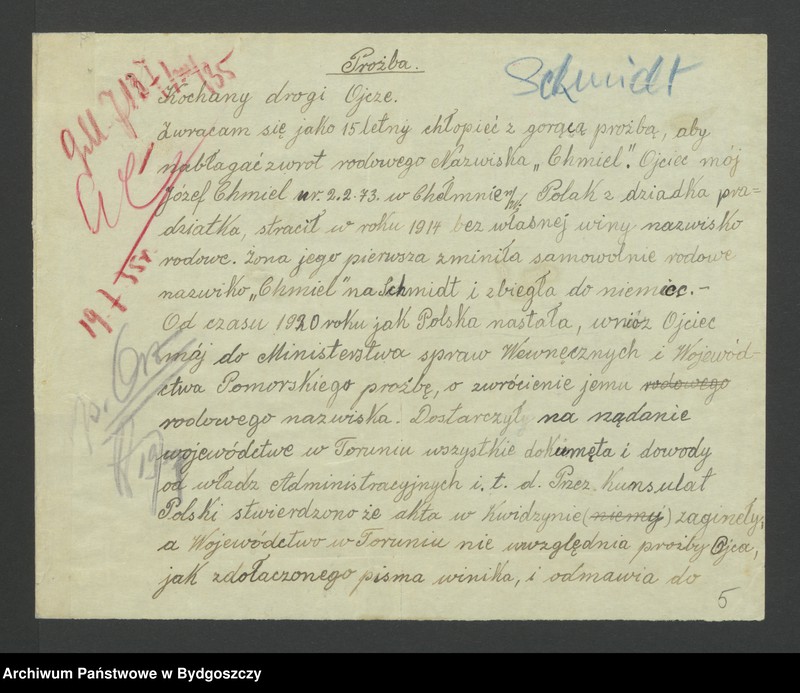 Proźba.
Schmidt
Kochany drogi Ojcze.
Zwracam się jako 15 letny chłopieć z gorącą proźbą, aby
nabłagać zwrot rodowego Názwiska „Chmiel". Ojciec mój
Józef Chmiel ur. 2.2.73. w Chełmnie n/W. Polak z dziadka pra-
dziatka, stracił w roku 1914 bez własnej winy nazwisko
rodowe. Żona jego pierwsza zminiła samowolnie rodowe
nazwiko „Chmiel" na Schmidt i zbiegła do niemiec.-
Od czasu 1920 roku jak Polska nastała, wnióz Ojciec
mój do Ministerstwa spraw Wewnecznych i Wojewód-
ctwa Pomorskiego proźbę, o zwrócienie jemu rodowego
rodowego nazwiska. Dostarczył na rządanie
województwe w Toruniu wszystkie dokumęta i dowody
od władz Administracyjnych i. t. d. Przez Kunsulat
Polski stwierdzono że akta w Kwidzynie (niemy) zagineły,
a Województwo w Toruniu nie uwzględnia proźby Ojca,
jak zdołaczonego pisma winika, i odmawia do
5
19. I 35r.
Archiwum Państwowe w Bydgoszczy